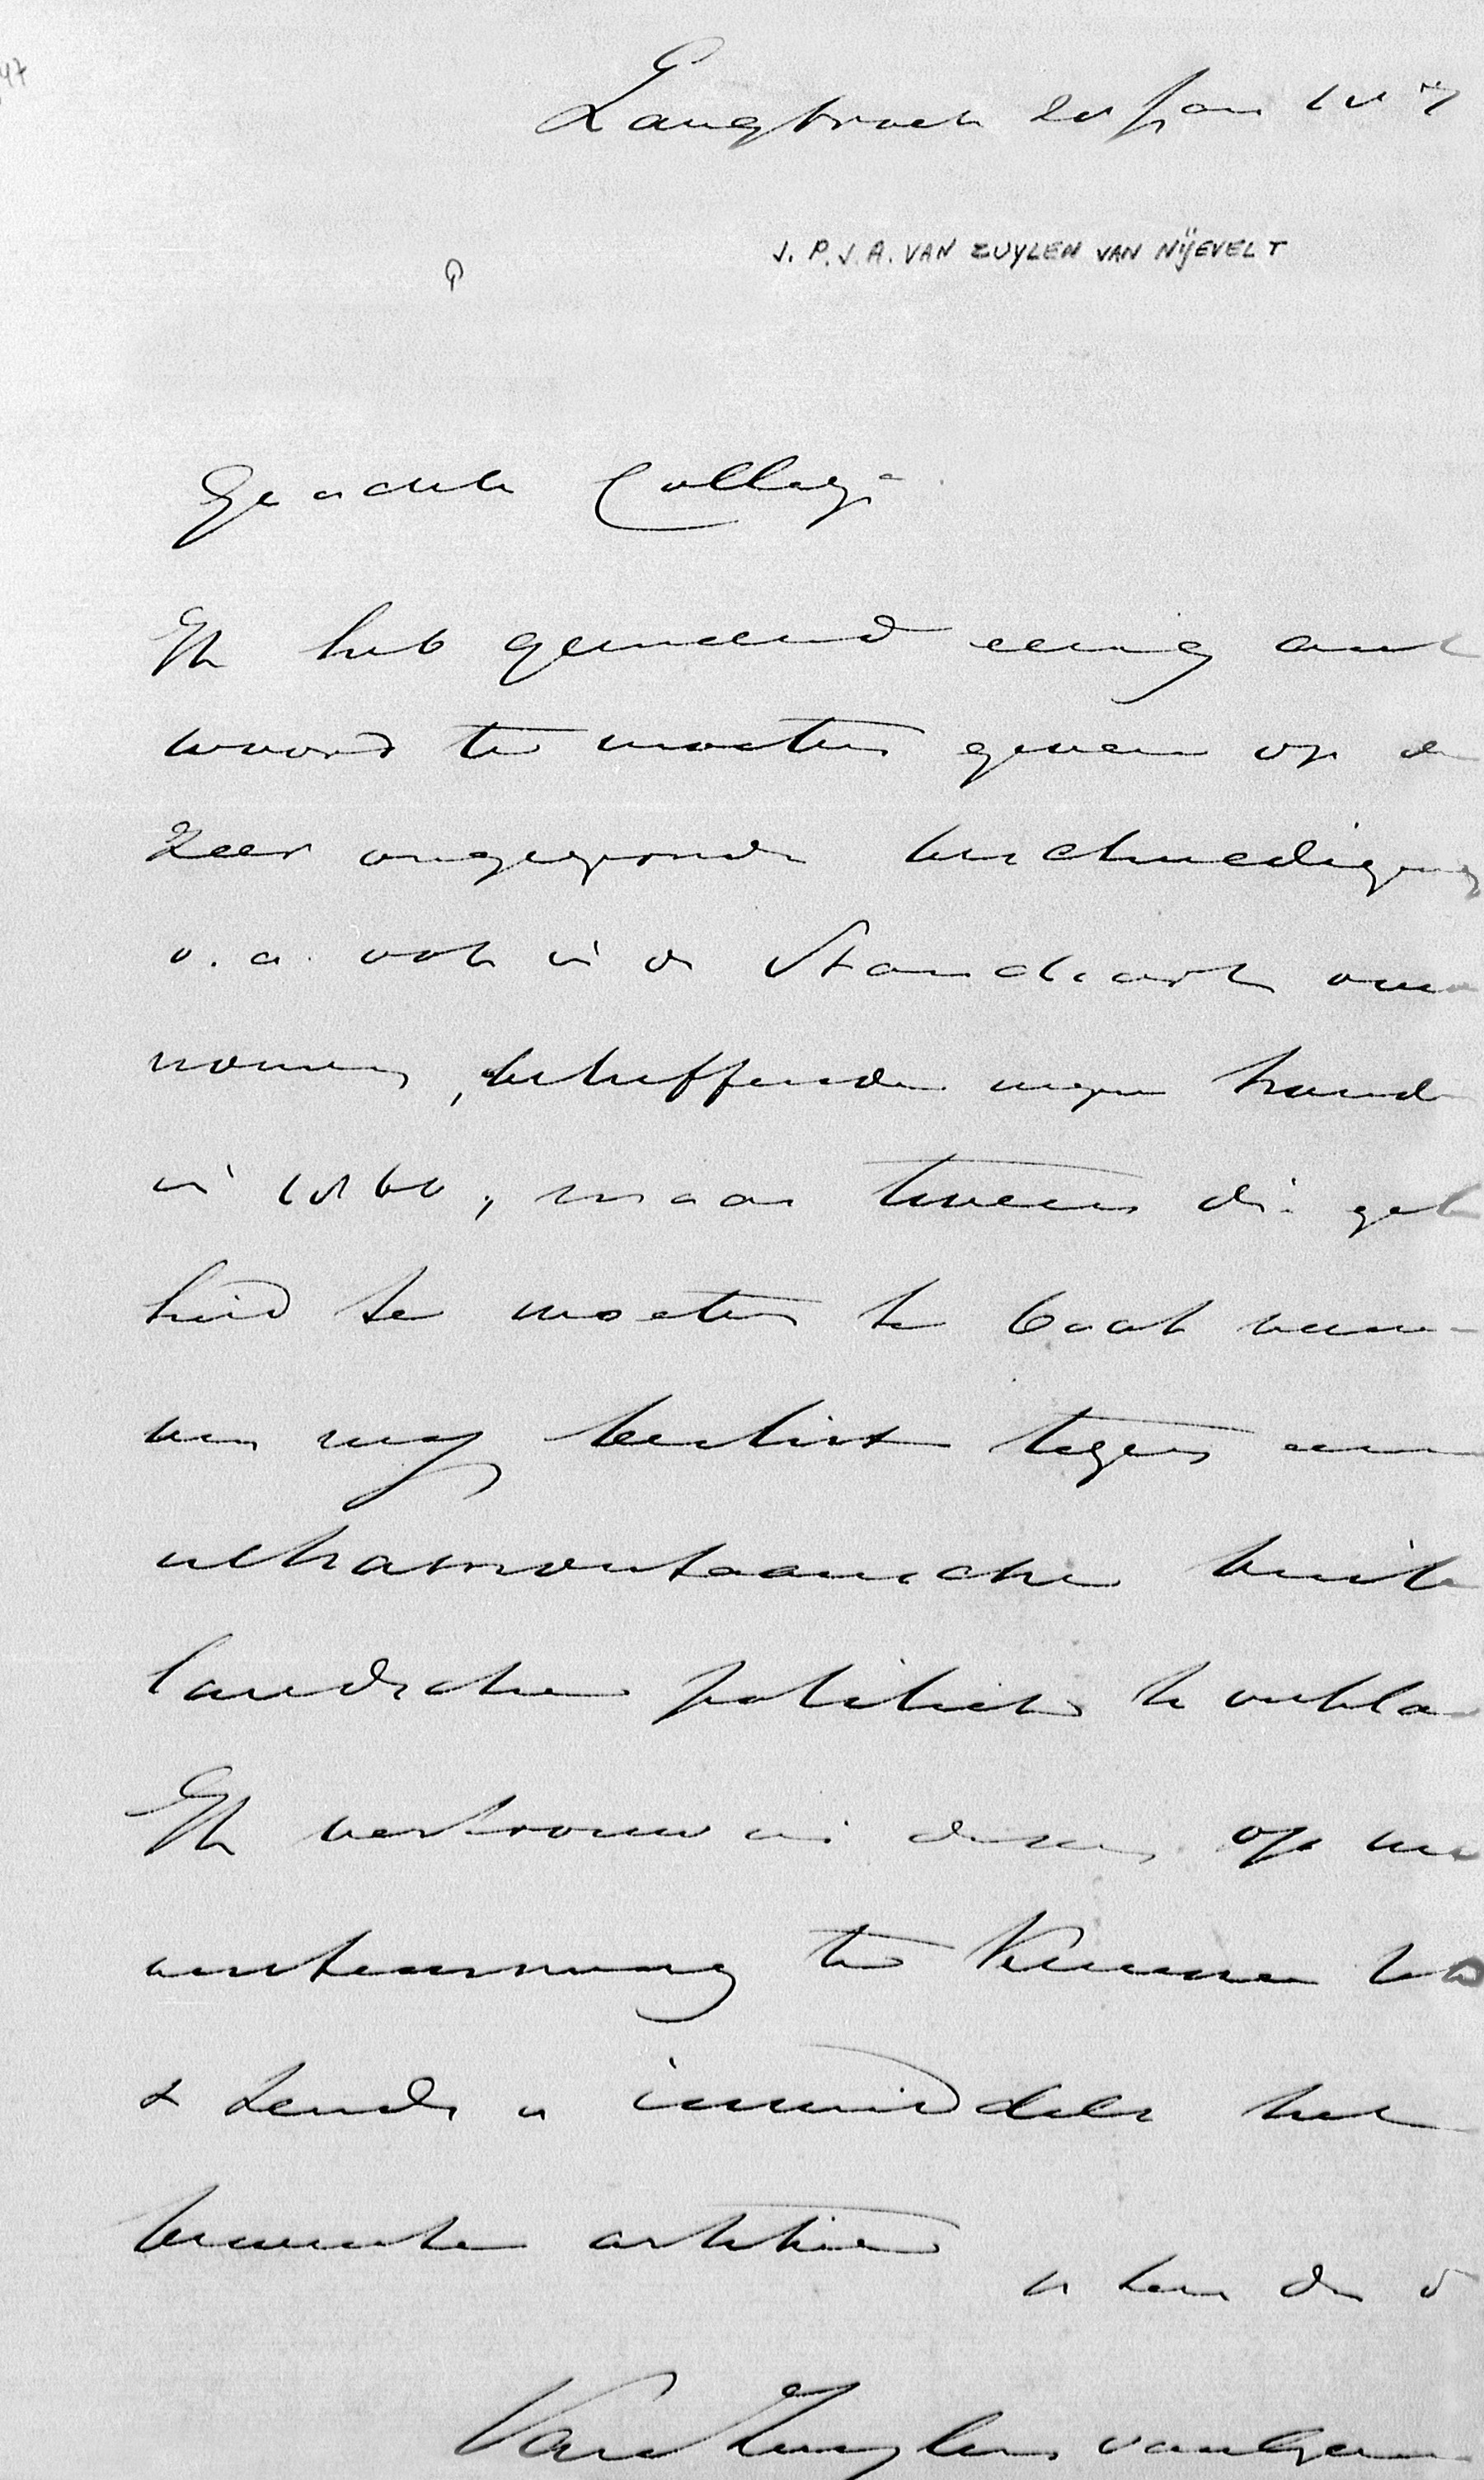 47
Langbroek 20 Jan 187
J. P. J. A. VAN ZUYLEN VAN NIJEVELT
Geachte Collega
Ik heb gemeend eenig ant
woord te moeten geven op de
zeer ongegronde beschuldiging
o.a. ook in de Standaart
nomen, betreffende mijn
in 1860, maar tevens die gel
heid te moeten te baat
mij beslist tegen een
ultramontaansche buite
landsche politiek te verkla
Ik vertrouw in dezen op
instemming te kunnen
& zende u inmiddels het
bewuste artikel

Van Zuylen van